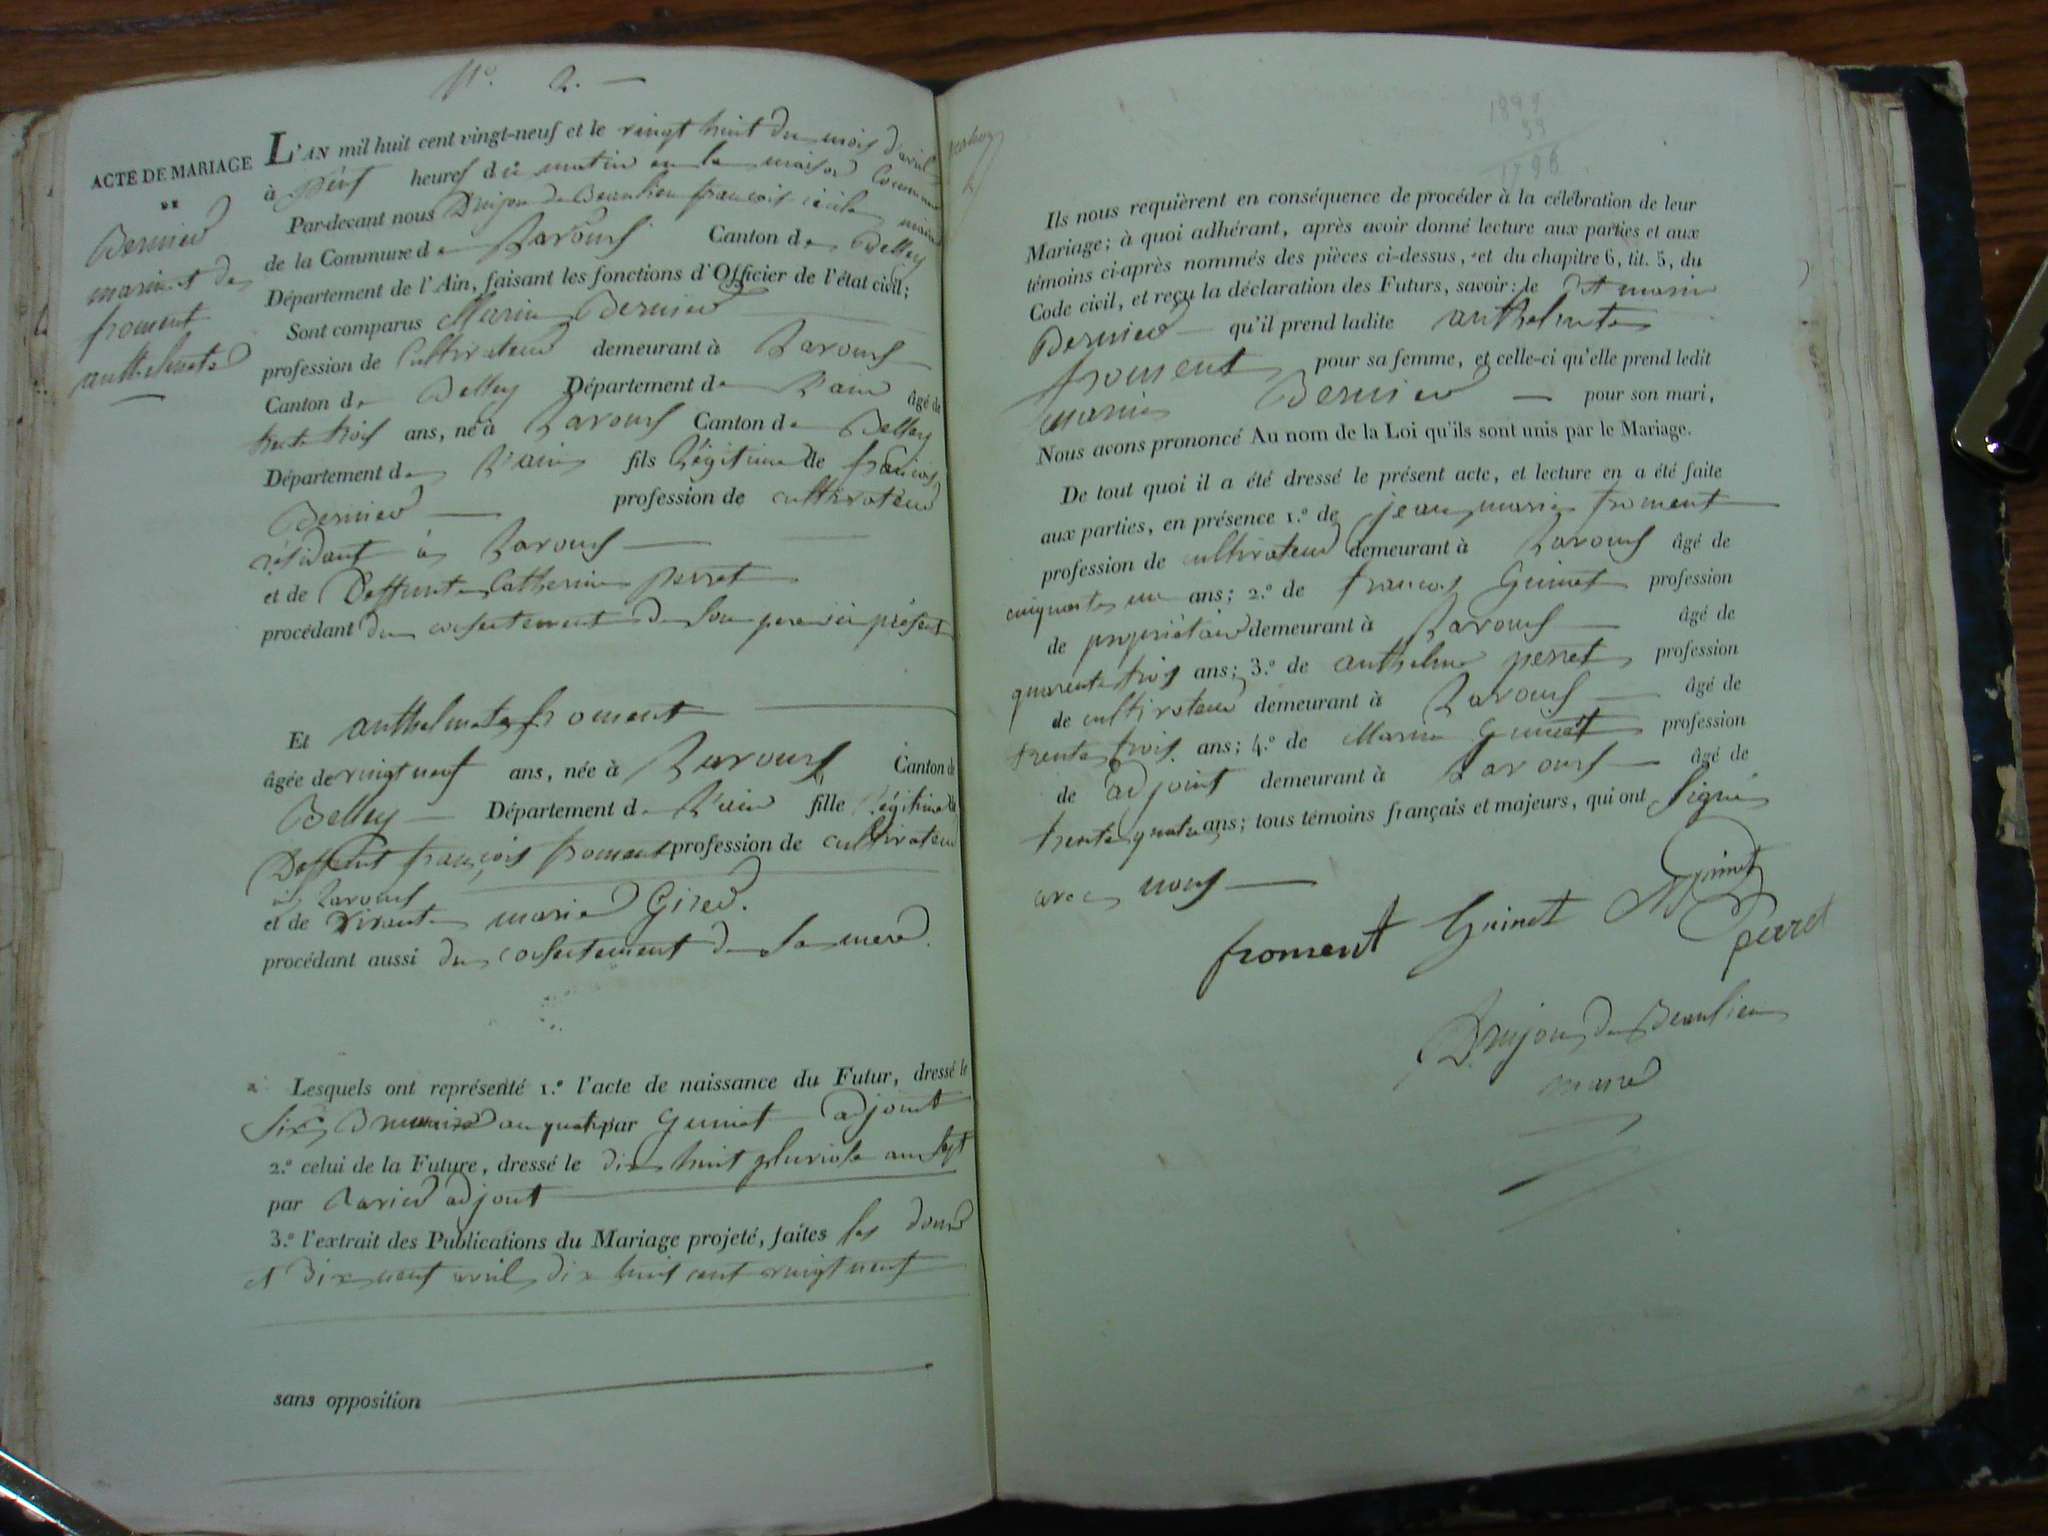 N.° 2. —
ACTE DE MARIAGE
DE
Bernier
marin et de
froment
anthelmete
L'AN mil huit cent vingt-neuf et le vingt huit du mois d'avril
à neuf heures du matin en la maison Commune
Par-devant nous Drujon de Beaulieu françois maire
de la Commune de Lavours Canton de Belley
Département de l'Ain, faisant les fonctions d'Officier de l'état civil;
Sont comparus Marin Bernier
profession de Cultivateur demeurant à Lavours
Canton de Belley Département de L'ain âgé de
trente trois ans, né à Lavours Canton de Belley
Département de L'ain fils Légitime de françois
Bernier — profession de cultivateur
résidant à Lavours —
et de Deffunte Catherine perret
procédant du consentement de Son pere ici présent
Et anthelmete froment
âgée de vingt neuf ans, née à Lavours Canton de
Belley — Département de L'ain fille Légitime de
Deffunt françois froment profession de cultivateur
à Lavours
et de vivante marie Girer.
procédant aussi du consentement de Sa mere.
Lesquels ont représenté 1.° l'acte de naissance du Futur, dressé le
Six Brumaire an quatre par Guinet adjoint
2.° celui de la Future, dressé le dix huit pluviose an Sept
par adjoint
3.° l'extrait des Publications du Mariage projeté, faites les douze
et Dix neuf avril dix huit cent vingt neuf
sans opposition
1829
33
1796
Ils nous requièrent en conséquence de procéder à la célébration de leur
Mariage; à quoi adhérant, après avoir donné lecture aux parties et aux
témoins ci-après nommés des pièces ci-dessus, et du chapitre 6, tit. 5, du
Code civil, et reçu la déclaration des Futurs, savoir: le dit marin
Bernier — qu'il prend ladite anthelmete
froment pour sa femme, et celle-ci qu'elle prend ledit
marin Bernier — pour son mari,
Nous avons prononcé Au nom de la Loi qu'ils sont unis par le Mariage.
De tout quoi il a été dressé le présent acte, et lecture en a été faite
aux parties, en présence 1.° de jean marie froment
profession de cultivateur demeurant à Lavours âgé de
cinquante un ans; 2.° de francois Guinet profession
de propriétaire demeurant à Lavours — âgé de
quarente trois ans; 3.° de anthelme perret profession
de cultivateur demeurant à Lavours — âgé de
trente trois ans; 4.° de Marin Guinet profession
de adjoint demeurant à Lavours — âgé de
trente quatre ans; tous témoins français et majeurs, qui ont Signé
avec nous —
froment Guinet M Guinet
perret
Drujon de Beaulieu
maire